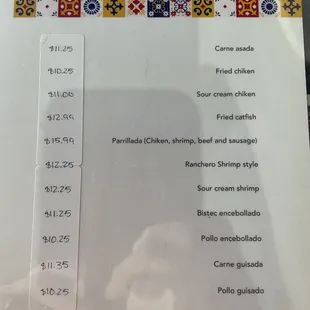 $11.25 Carne asada
$10.25 Fried chiken
$11.00 Sour cream chiken
$12.99 Fried catfish
$15.99 Parrillada (Chiken, shrimp, beef and sausage)
$12.25 Ranchero Shrimp style
$12.25 Sour cream shrimp
$11.25 Bistec encebollado
$10.25 Pollo encebollado
$11.35 Carne guisada
$10.25 Pollo guisado